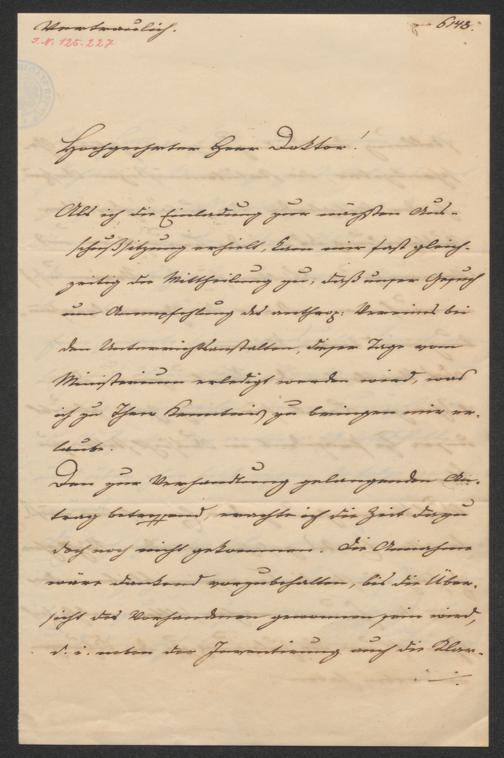 Vertraulich.
6148.
I. N. 125.227
Hochgeehrter Herr Doktor!
Als ich die Einladung zur nächsten Aus-
schußsitzung erhielt, kam mir fast gleich-
zeitig die Mittheilung zu, daß unser Gesuch
um Anempfehlung des anthrop: Vereines bei
den Unterrichtsanstalten, dieser Tage vom
Ministerium erledigt werden wird, was
ich zu Ihrer Kenntnis zu bringen mir er-
laube.
Den zur Verhandlung gelangenden An-
trag betreffend, erachte ich die Zeit dazu
doch noch nicht gekommen. Die Annahme
wäre dankend vorzubehalten, bis die Über-
sicht des Vorhandenen gewonnen sein wird,
d. i. neben der Inventirung auch die Klar-